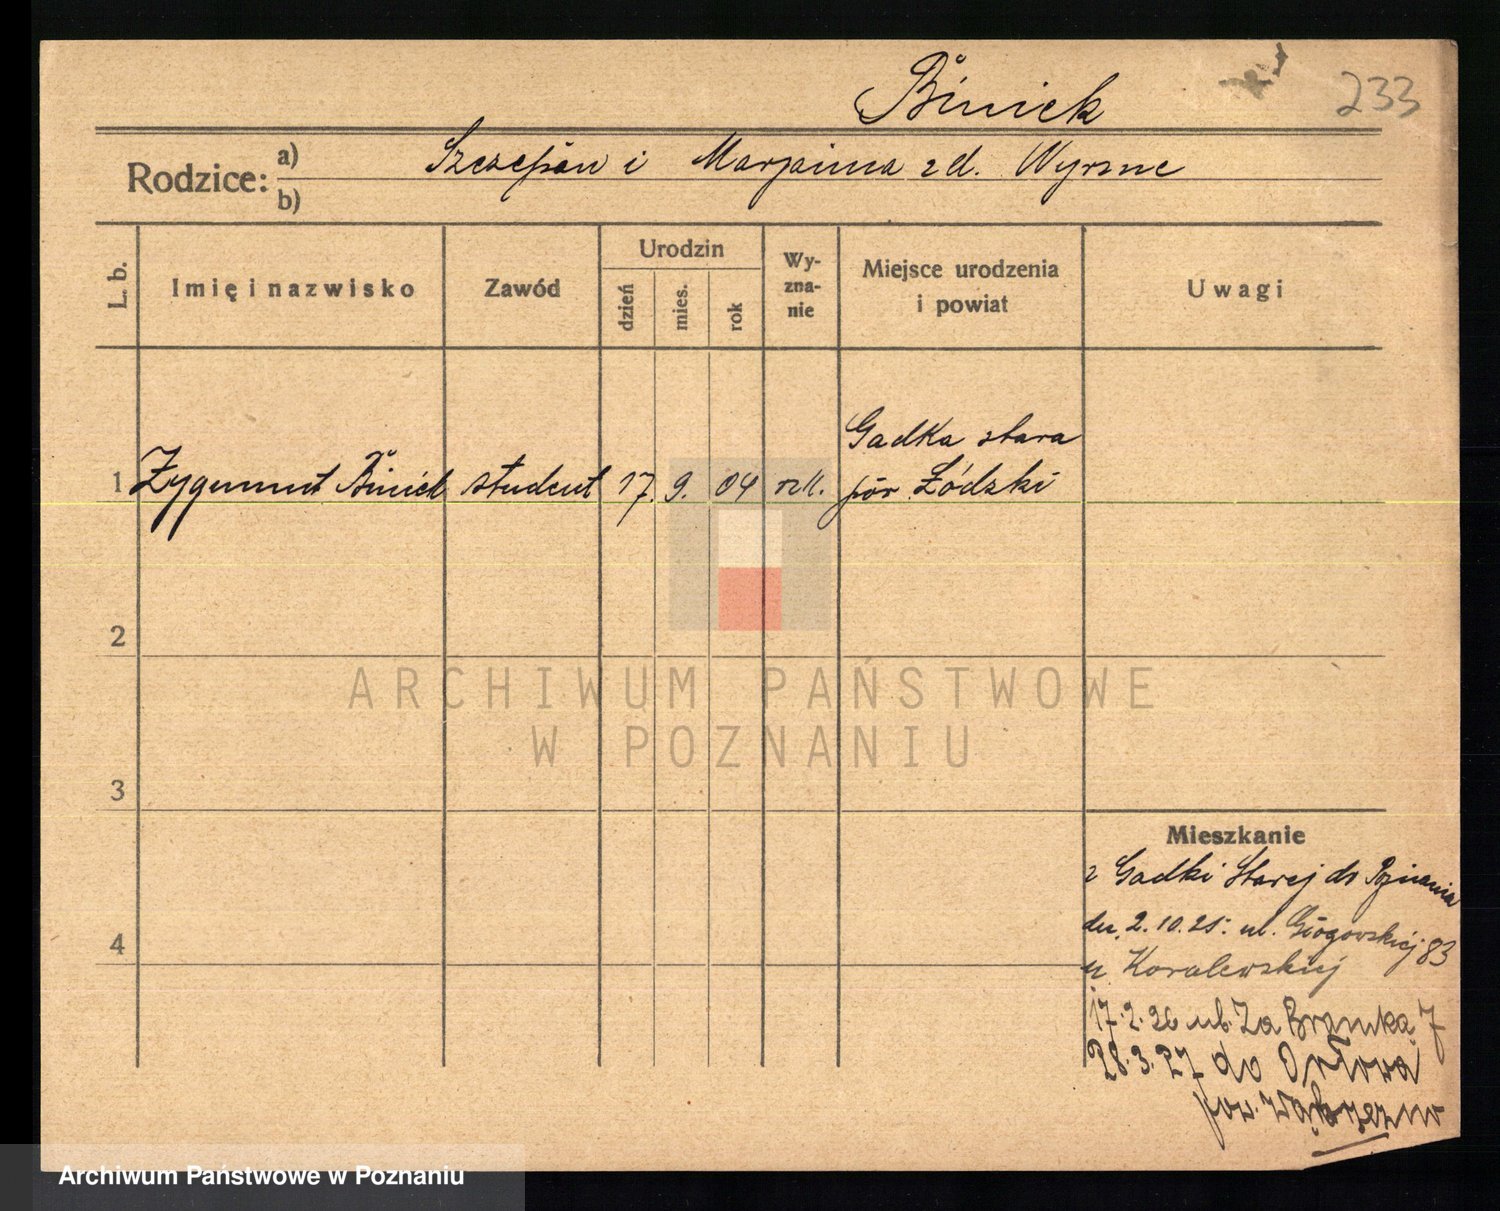 Biniek 233
Rodzice: a) Szczepan i Marjanna zd. Wyrsne
b)
L. b. Imię i nazwisko Zawód Urodzin dzień mies. rok Wyznanie Miejsce urodzenia i powiat Uwagi
Gadka stara
1 Zygmunt Biniek student 17. 9. 04 rzk. pow Łódzki
2
ARCHIWUM PAŃSTWOWE
W POZNANIU
3
Mieszkanie
z Gadki Starej do Poznania
dn. 2.10.25. ul. Głogowskiej 83
4
u Kowalewskiej
17.2.26 ul. Za Bramką 7
28.3.27 do Orłowa
pow. Wąbrzeźno
Archiwum Państwowe w Poznaniu